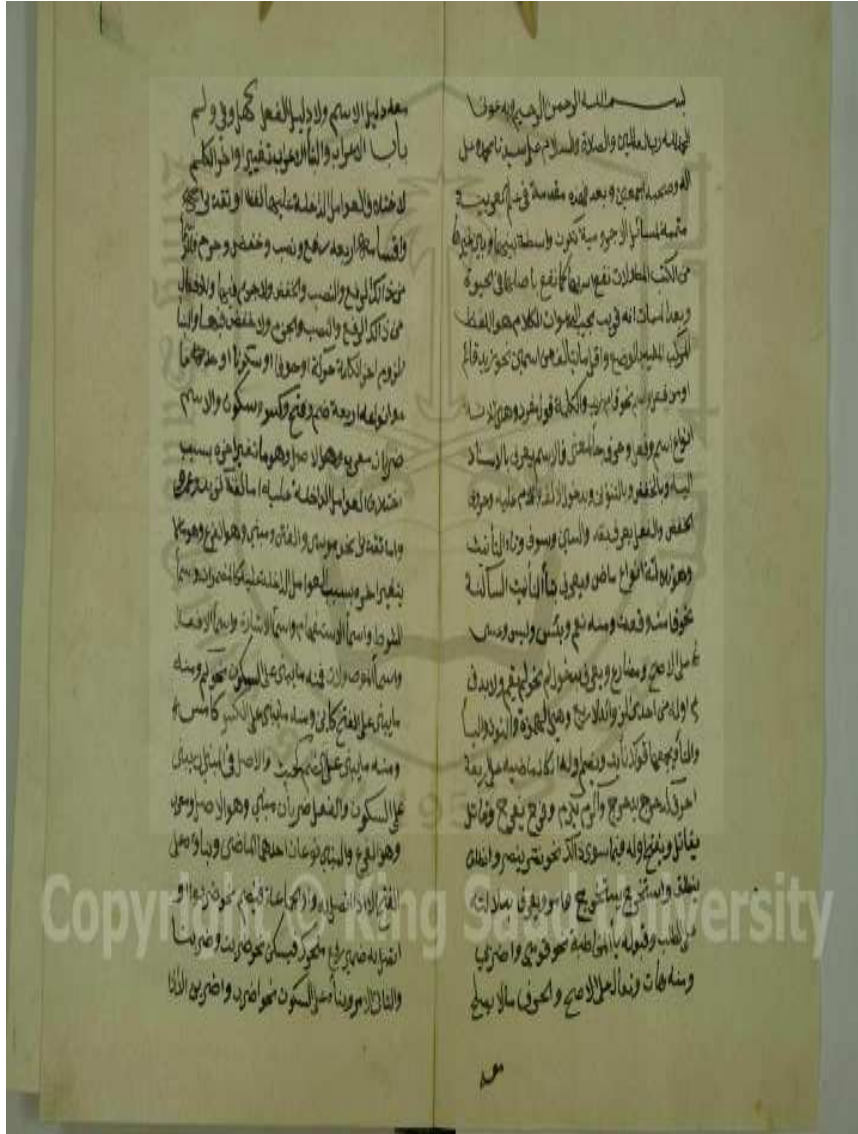 بسم الله الرحمن الرحيم وبه عوني
الحمد لله رب العالمين والصلاة والسلام على سيدنا محمد وعلى
اله وصحبه اجمعين وبعد فهذه مقدمة في علم العربية
متممة لمسائل الاجرومية تكون واسطة بينها وبين غيرها
من الكتب المطولات نفع الله بها كما نفع باصلها في الحيوة
وبعد الممات انه قريب مجيب الدعوات الكلام هو اللفظ
المركب المفيد بالوضع واقل ما يتالف من اسمين نحو زيد قائم
او من فعل واسم نحو قام زيد والكلمة قول مفرد وهي ثلاثة
انواع اسم وفعل وحرف جا لمعنى فالاسم يعرف بالاسناد
اليه وبالخفض وبالتنوين وبدخول الالف واللام عليه وحروف
الخفض والفعل يعرف بقد والسين وسوف وتاء التأنيث
وهو ثلاثة انواع ماض ويعرف بتأ التأنيث الساكنة
نحو قامت وقعدت ومنه نعم وبئس وليس وعسى
على الاصح ومضارع ويعرف بدخول لم نحو لم يقم ولا بد في
اوله من احدى الزوائد الاربع وهي الهمزة والنون واليا
والتأ ويجمعها قولك نأيت ويضم اوله ان كان ماضيه على اربعة
احرف كدحرج يدحرج واكرم يكرم وفرح يفرح وقاتل
يقاتل ويفتح اوله فيما سوى ذالك نحو نصر ينصر وانطلق
ينطلق واستخرج يستخرج وامر ويعرف بدلالته
على الطلب وقبوله يا المخاطبة نحو قومي واضربي
ومنه هات وتعال على الاصح والحرف ما لا يصلح
معه
معه دليل الاسم ولا دليل الفعل كهل وفي ولم
باب الاعراب والبنأ الاعراب تغيير اواخر الكلم
لاختلاف العوامل الداخلة عليها لفظا او تقديرا
واقسامه اربعة رفع ونصب وخفض وجزم فللاسمآ
من ذالك الرفع والنصب والخفض ولا جزم فيها وللافعال
من ذالك الرفع والنصب والجزم ولا خفض فيها والبنا
لزوم اخر الكلمة حركة او سكونا
وانواعه اربعة ضم وفتح وكسر وسكون والاسم
ضربان معرب وهو الاصل وهو ما تغير اخره بسبب
اختلاف العوامل الداخلة عليه اما لفظا كزيد وعمرو
واما تقديرا نحو موسى والفتى ومبني وهو الفرع وهو ما لا
يتغير اخره بسبب العوامل الداخلة عليه كالمضمرات واسمأ
الشرط واسمأ الاستفهام واسمأ الاشارة واسمأ الافعال
واسمأ الموصولات فمنه ما يبنى على السكون نحو كم ومنه
ما يبنى على الفتح كاين ومنه ما يبنى على الكسر كامس
ومنه ما يبنى على الضم كحيث والاصل في المبني ان يبنى
على السكون والفعل ضربان مبني وهو الاصل ومعرب
وهو الفرع والمبني نوعان احدهما الماضي وبناؤه على
الفتح الا اذا اتصل به واو الجماعة فيضم نحو ضربوا او
اتصل به ضمير رفع متحرك فيسكن نحو ضربت وضربنا
والثاني الامر وبنأه على السكون نحو اضرب واضربن الا اذا
Copyright © King Saud University